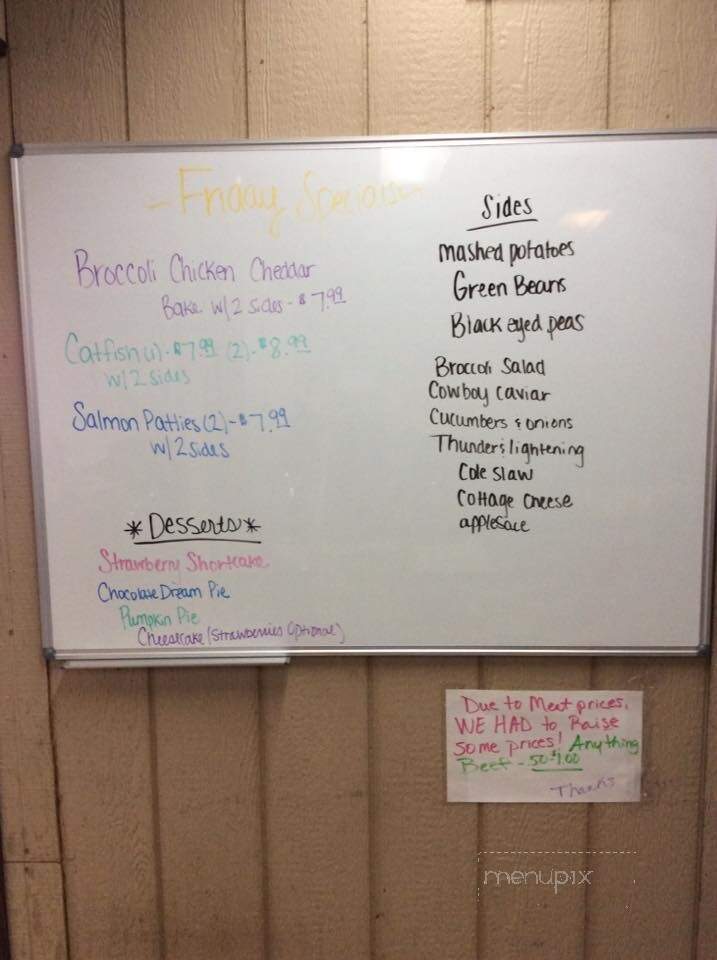 - Friday Specials -
Broccoli Chicken Cheddar
Bake w/2 sides - $7.99
Catfish (1) - $7.99 (2) - $8.99
w/2 sides
Salmon Patties (2) - $7.99
w/2 sides
*Desserts*
Strawberry Shortcake
Chocolate Dream Pie
Pumpkin Pie
Cheesecake (Strawberries Optional)
Sides
mashed potatoes
Green Beans
Black eyed peas
Broccoli Salad
Cowboy caviar
Cucumbers & onions
Thunder & lightening
Cole slaw
Cottage cheese
applesace
Due to Meat prices,
WE HAD to Raise
Some prices! Anything
Beef - 50-$1.00
Thanks
menupix